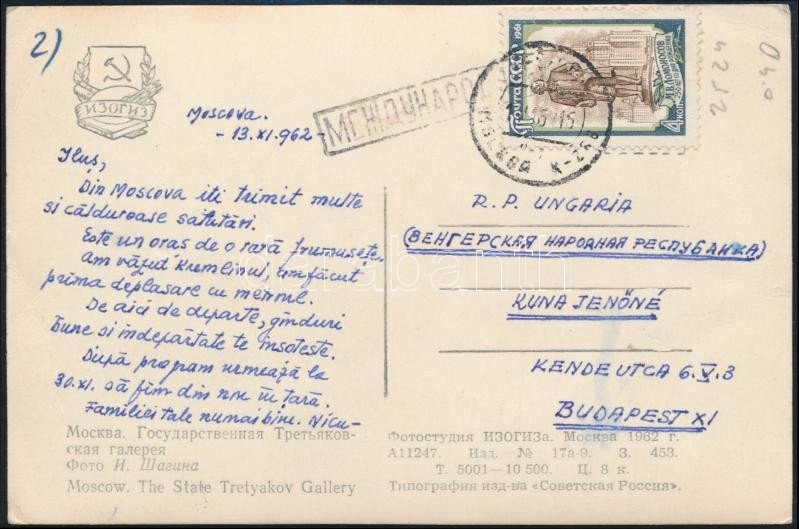 2)
ИЗОГИЗ
Moscova.
- 13.XI.962 -
Iluș,
Din Moscova iti trimit multe
si călduroase salutări.
Este un oras de o rară frumusețe.
Am văzut Kremlinul, am făcut
prima deplasare cu metroul.
De aici de departe, gînduri
bune si îndepărtate te însotește.
După program urmează la
30.XI. să fim din nou în țară.
Familiei tale numai bine. Nicu-
Москва. Государственная Третьяков-
ская галерея
Фото И. Шагина
Moscow. The State Tretyakov Gallery
МЕЖДУНАРО
ПОЧТА СССР 1961
М.В.ЛОМОНОСОВ
4 коп
МОСКВА
2524
040
R.P. UNGARIA
(ВЕНГЕРСКАЯ НАРОДНАЯ РЕСПУБЛИКА)
KUNA JENŐNÉ
KENDE UTCA 6.V.3
BUDAPEST XI
Фотостудия ИЗОГИЗа. Москва 1962 г.
А11247. Изд. № 17а-9. З. 453.
Т. 5001—10 500. Ц. 8 к.
Типография изд-ва «Советская Россия».
darabanth